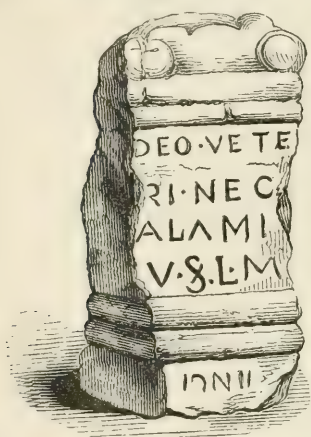 DEO·VETE
RI·NEC
ALAMI
V·S·L·M